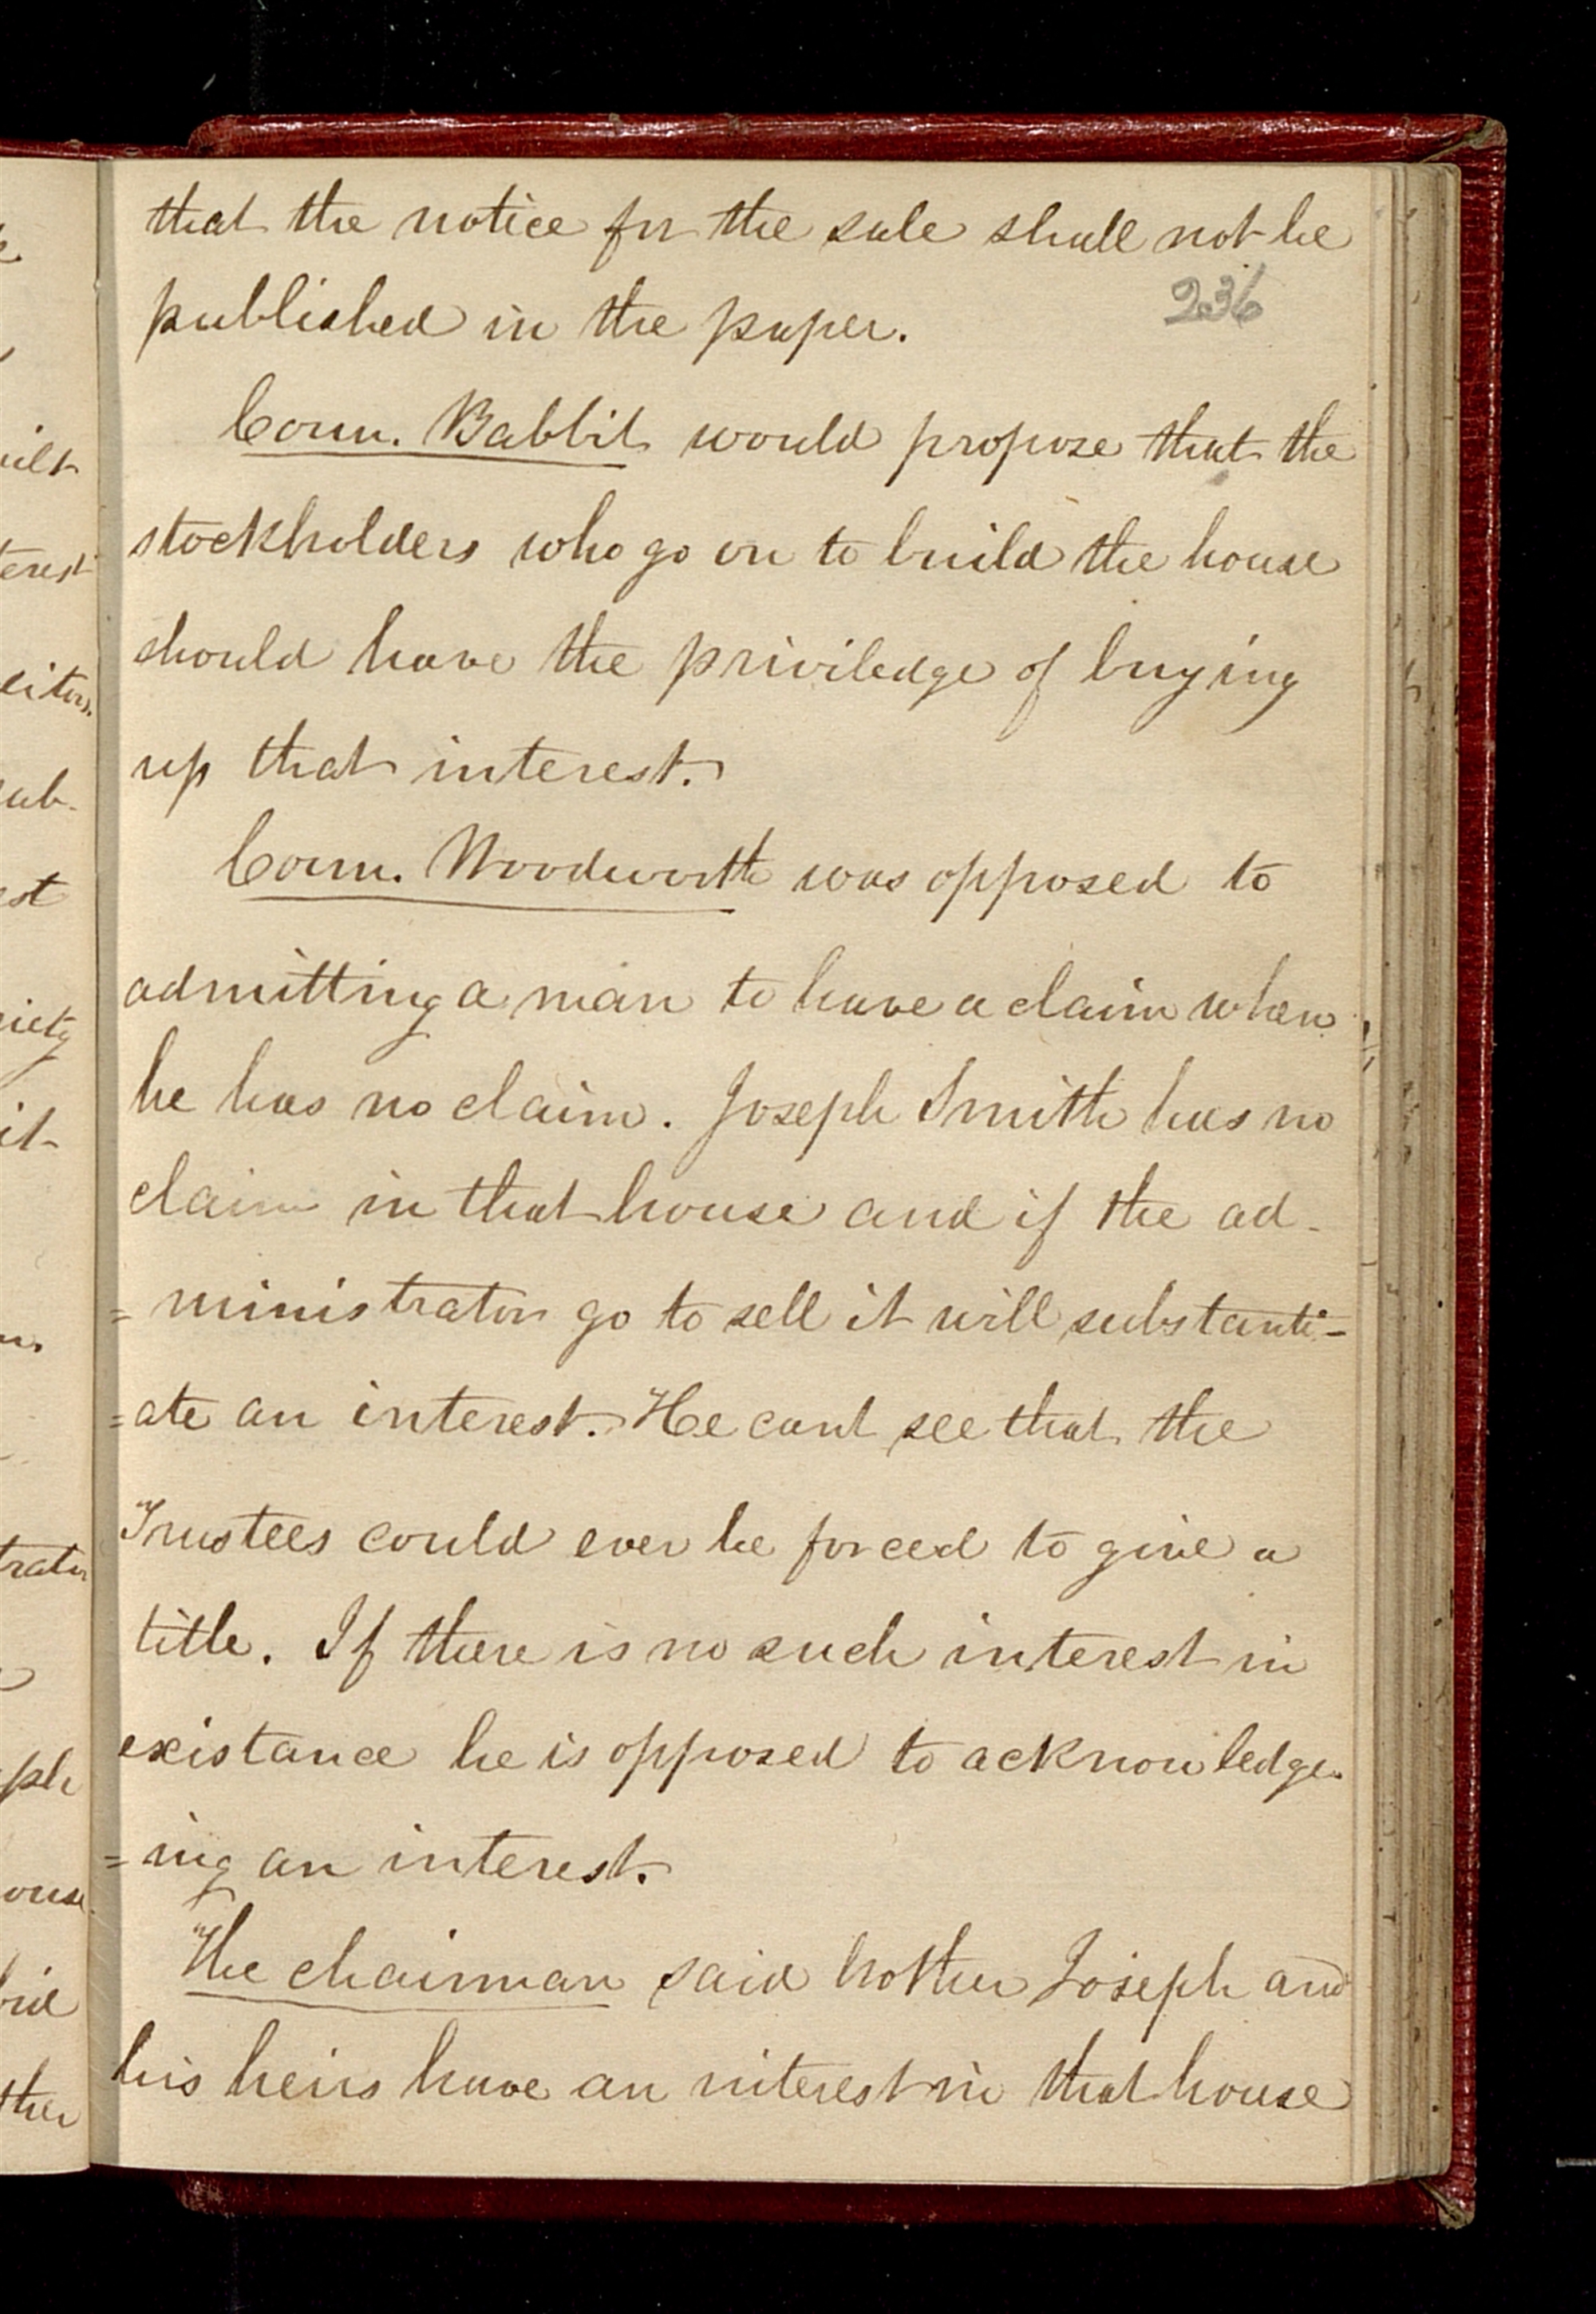 that the notice for the sale shall not be
published in the paper.
236
Coun. Babbit would propose that the
stockholders who go on to build the house
should have the priviledge of buying
up that interest.
Coun. Woodworth was opposed to
admitting a man to have a claim when
he has no claim. Joseph Smith has no
claim in that house and if the ad-
=ministrator go to sell it will substanti-
=ate an interest. He cant see that the
Trustees could ever be forced to give a
title. If there is no such interest in
existance he is opposed to acknowledge-
=ing an interest.
The chairman said brother Joseph and
his heirs have an interest in that house